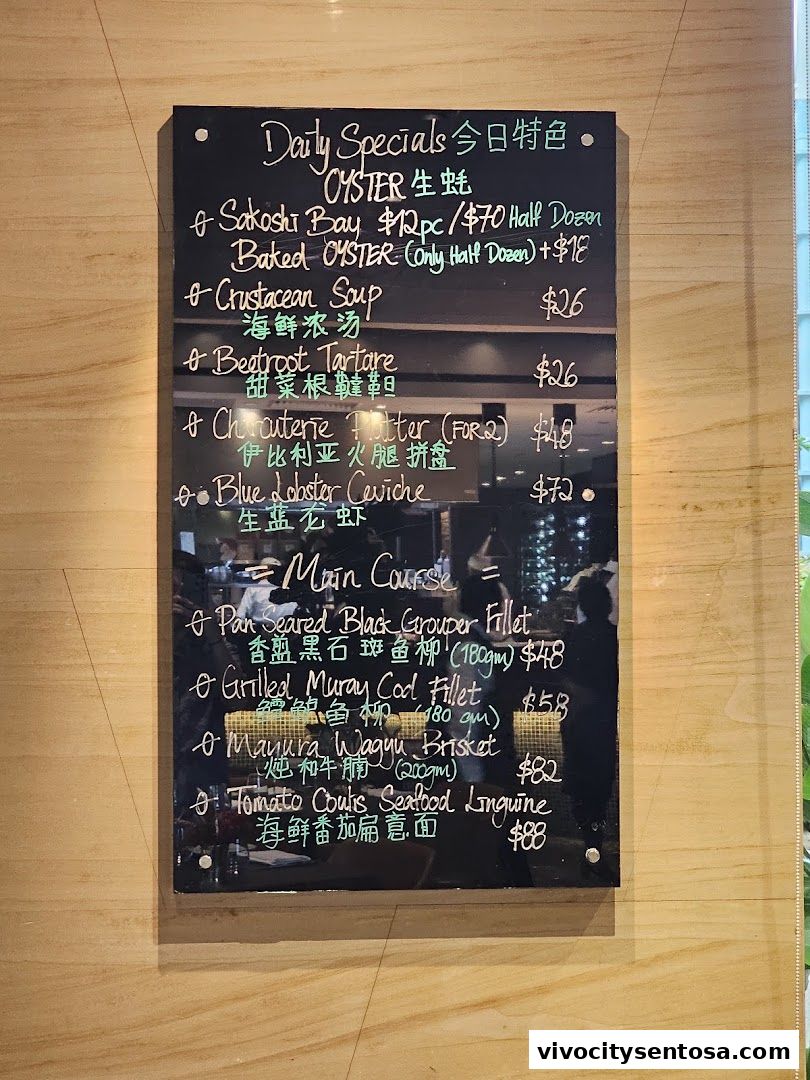 Daily Specials 今日特色
OYSTER 生蚝
Sakoshi Bay $12pc/$70 Half Dozen
Baked OYSTER (Only Half Dozen) +$18
Crustacean Soup $26
海鲜浓汤
Beetroot Tartare $26
甜菜根鞑靼
Charcuterie Platter (FOR 2) $48
伊比利亚火腿拼盘
Blue Lobster Ceviche $72
生蓝龙虾
= Main Course =
Pan Seared Black Grouper Fillet
香煎黑石斑鱼柳 (180gm) $48
Grilled Muray Cod Fillet $58
鳕鱼柳 (180 gm)
Mayura Wagyu Brisket
炖和牛腩 (200gm) $82
Tomato Coulis Seafood Linguine
海鲜番茄扁意面 $88
vivocitysentosa.com